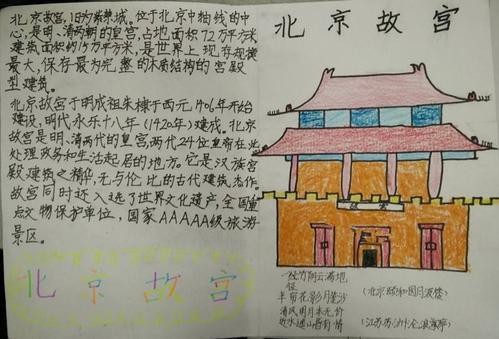 北京故宫,旧为紫禁城。位于北京中轴线的中
心,是明、清两朝的皇宫,占地面积72万平方米
建筑面积约15万平方米,是世界上现存规模
最大,保存最为完整的木质结构的宫殿
型建筑。
北京故宫于明成祖朱棣于西元1406年开始
建设,明代永乐十八年(1420年)建成。北京
故宫是明、清两代的皇宫,两代24位皇帝在此
处理政务和生活起居的地方。它是汉族宫
殿建筑之精华,无与伦比的古代建筑杰作
故宫同时还入选了世界文化遗产,全国重
点文物保护单位,国家AAAAA级旅游
景区。
北京故宫
北京故宫
故宫
一径竹阴云满地
半帘花影月笼沙
(北京颐和园月波楼)
清风明月本无价
近水远山皆有情
(江苏苏州沧浪亭)